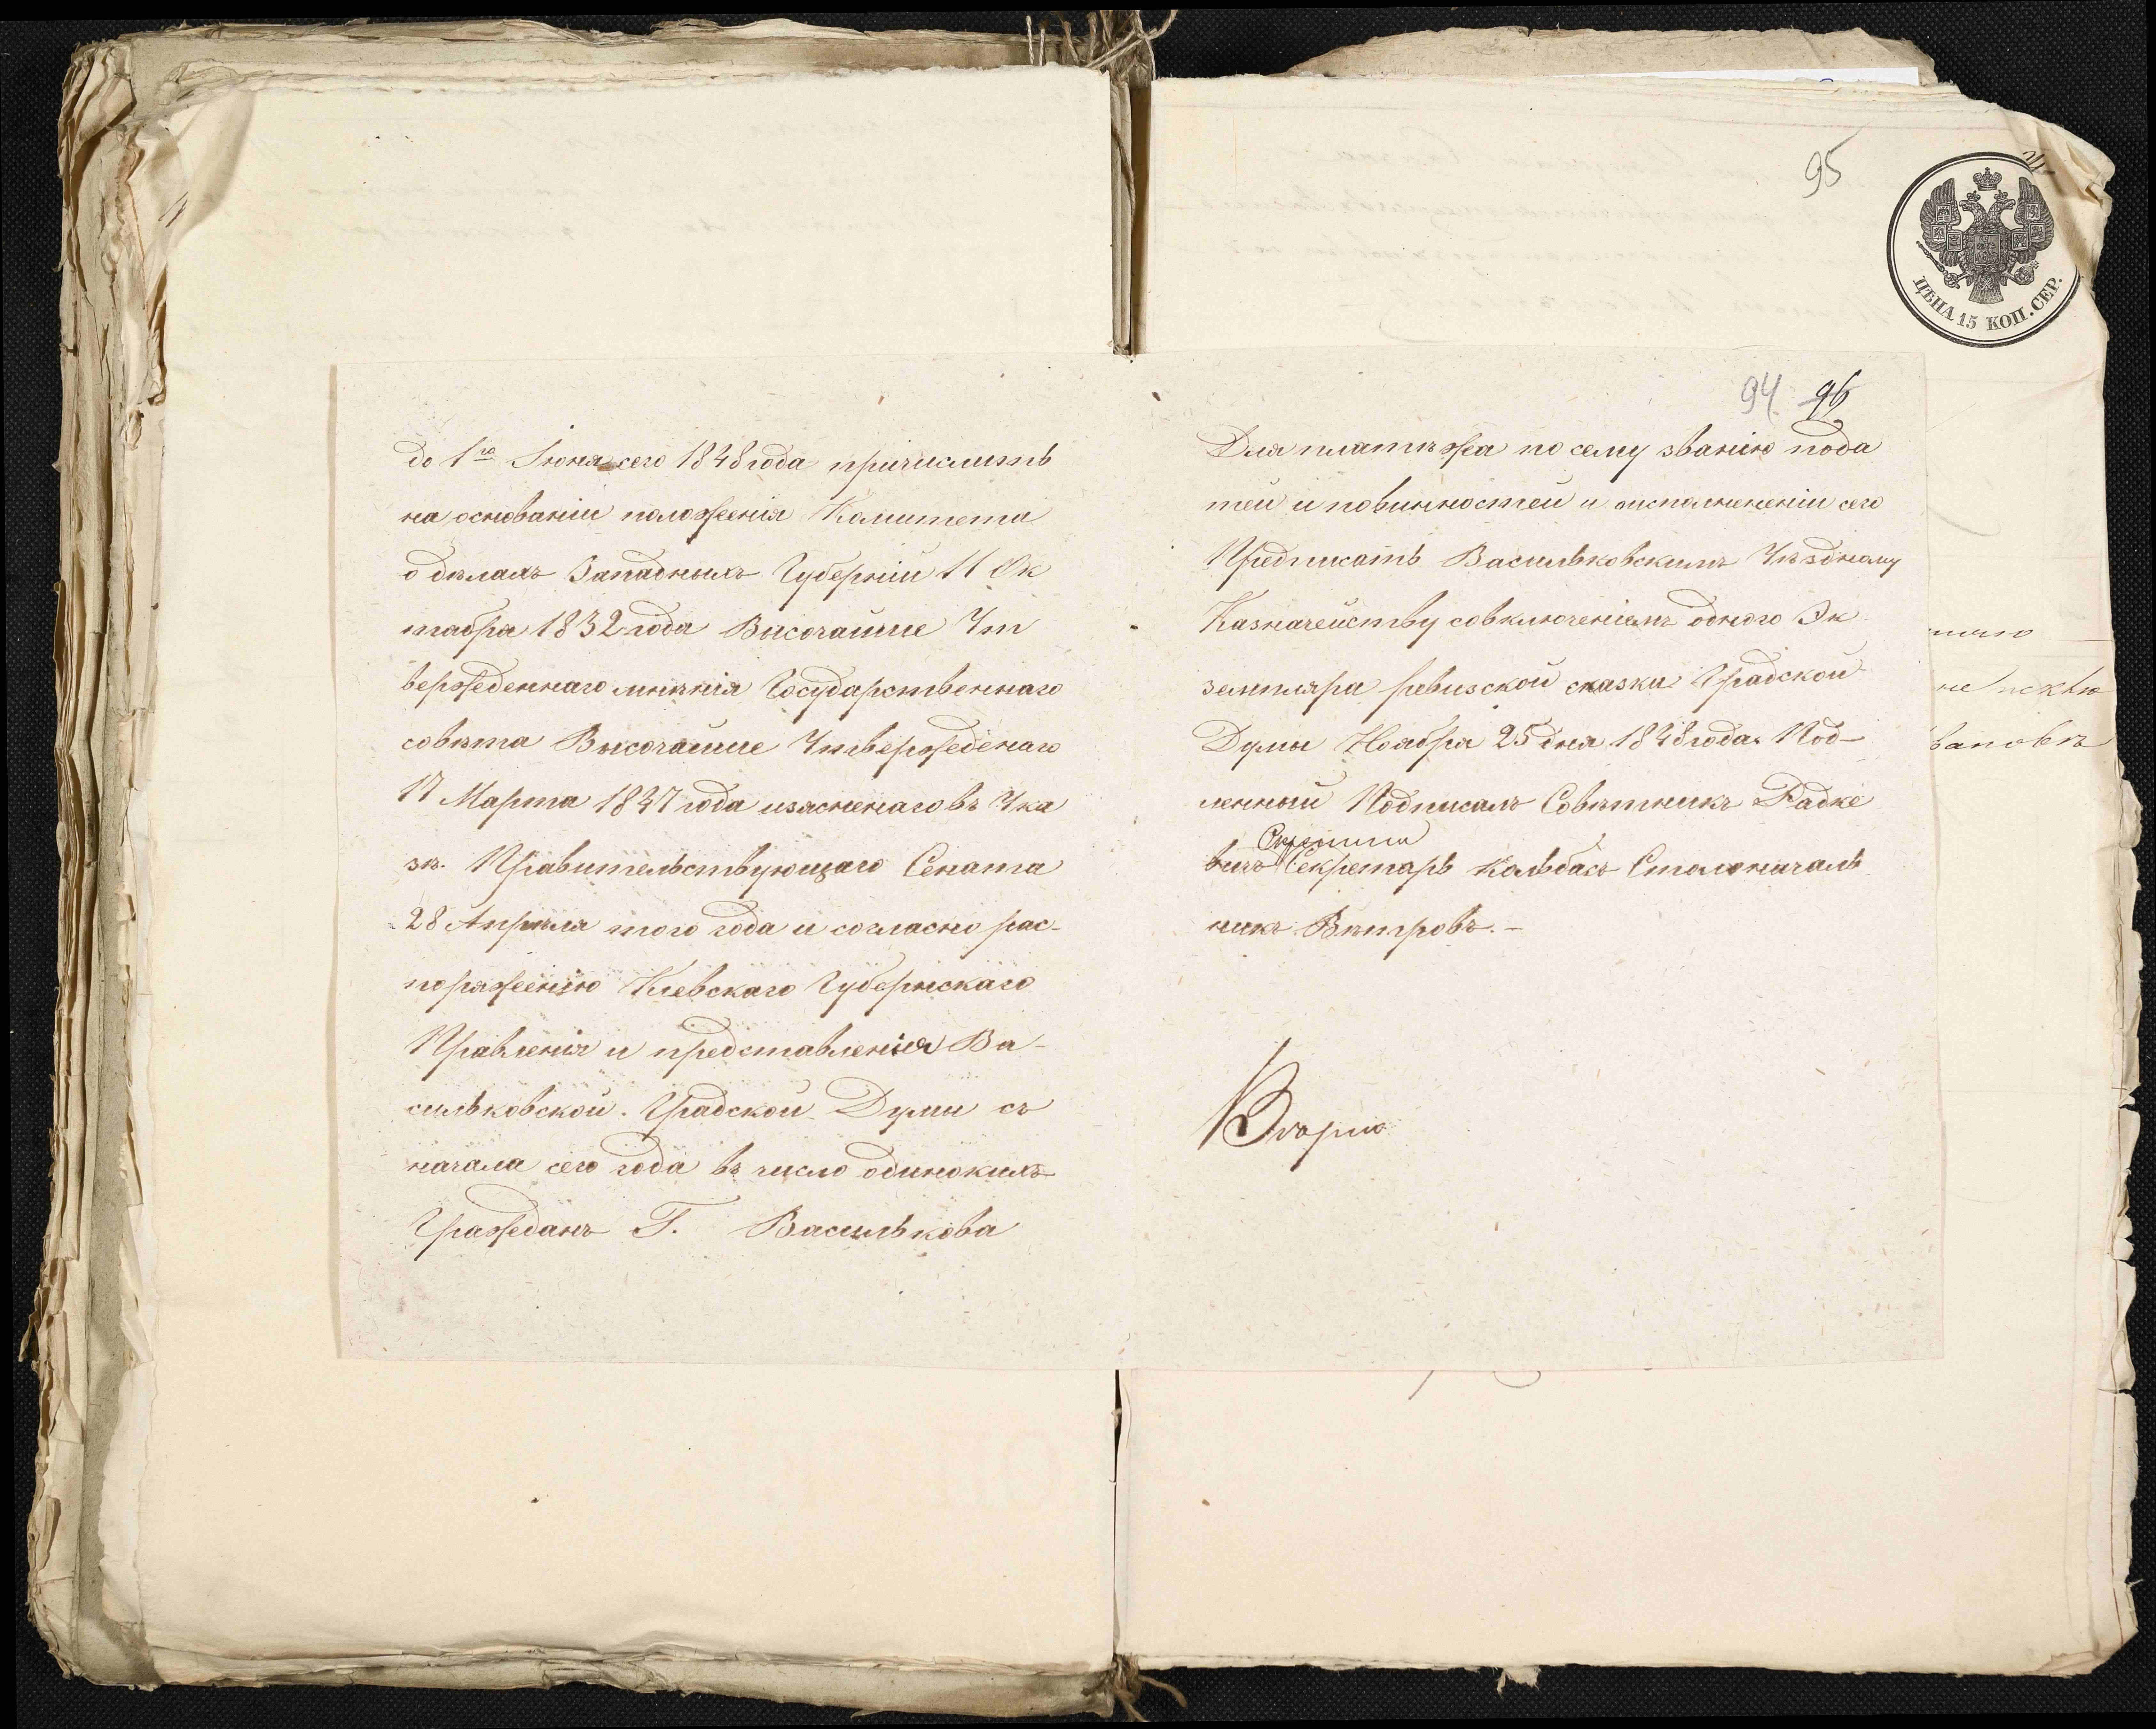 до 1го Іюня сего 1848 года причислить
на основаніи положенія Комитета
о дѣлахъ Западныхъ Губерній 11 Ок
тября 1832 года Высочайше Ут
вержденнаго мнѣнія Государственнаго
совѣта Высочайше Утвержденаго
17 Марта 1847 года изясненаго въ Ука
зѣ. Правительствующаго Сената
28 Апрѣля того года и согласно рас-
поряженію Киевскаго Губернскаго
Правленія и представленія Ва-
сильковской Градской Думы съ
начала сего года въ число одинокихъ
Гражданъ Г. Василькова
95
ЦѢНА 15 КОП. СЕР.
94 96
Для платѣжа по сему званію пода
тей и повинностей и оисполнененіи сего
Предписать Васильковскимъ Уѣздному
Казначейству совключеніемъ одного Эк
земпляра ревизской сказки Градской
Думы Ноября 25 дня 1848 года. Под-
ленный Подписалъ Совѣтникъ Радке
вичъ Скрепили Секретарь Кальбасъ Столоначаль
никъ Вѣтровъ.-